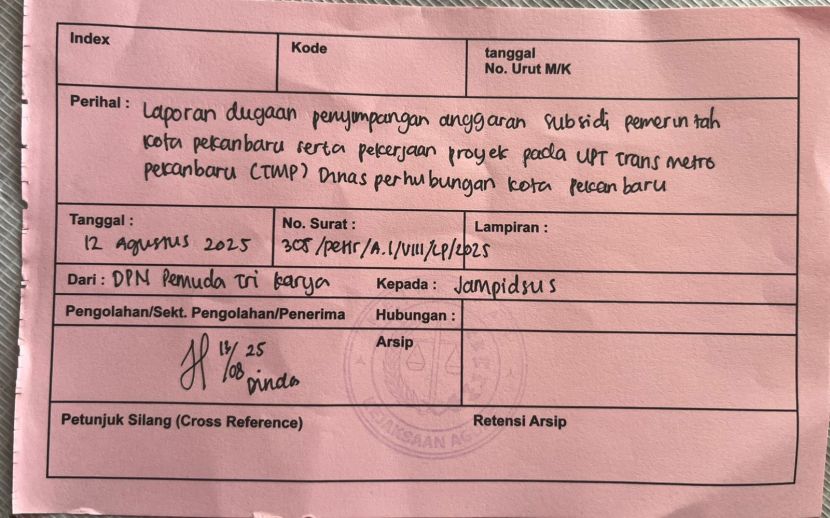 Index
Kode
tanggal
No. Urut M/K
Perihal : Laporan dugaan penyimpangan anggaran subsidi pemerintah
kota pekanbaru serta pekerjaan proyek pada UPT trans metro
pekanbaru (TMP) Dinas perhubungan kota pekanbaru
Tanggal :
12 Agustus 2025
No. Surat :
305/petir/A.1/VIII/LP/2025
Lampiran :
Dari : DPN Pemuda Tri karya
Kepada : Jampidsus
Pengolahan/Sekt. Pengolahan/Penerima
Hubungan :
13/08 25
Dinda
Arsip
KEJAKSAAN AG
Petunjuk Silang (Cross Reference)
Retensi Arsip